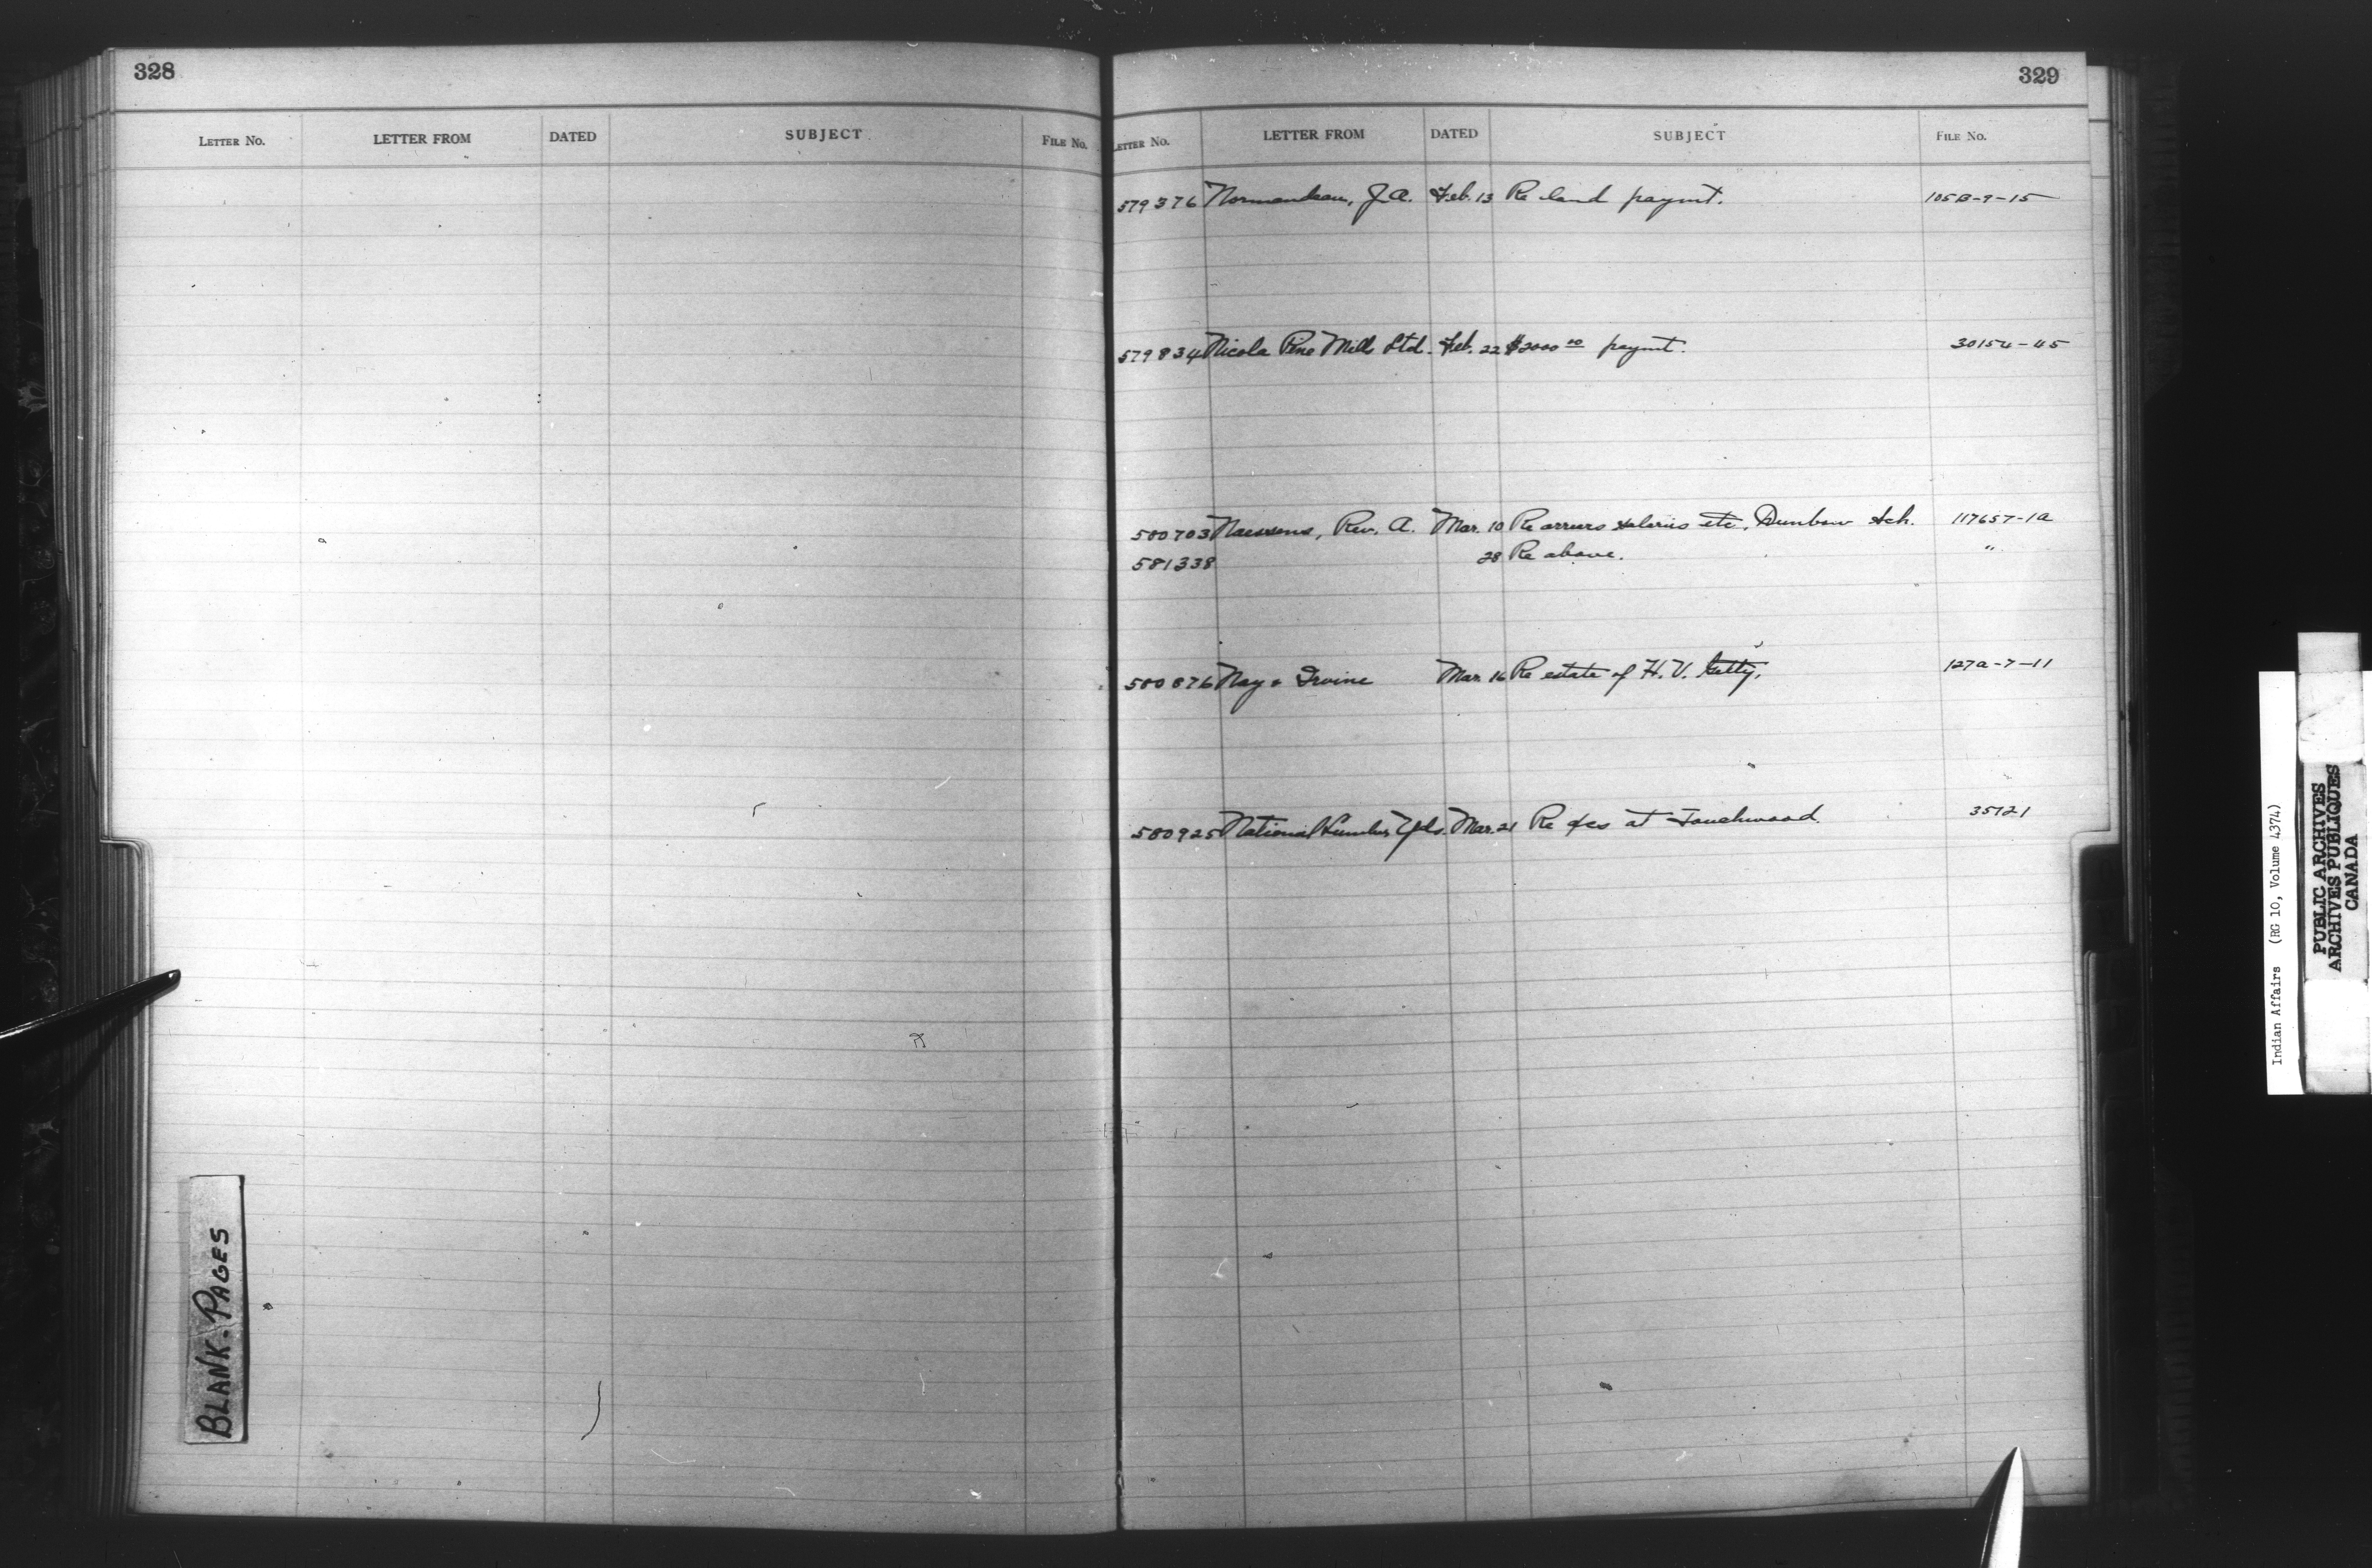 328
LETTER No. LETTER FROM DATED SUBJECT FILE No.
BLANK-PAGES
329
LETTER No. LETTER FROM DATED SUBJECT FILE No.
579376 Normandeau, J.A. Feb. 13 Re land paymt. 105B-9-15
579834 Nicola Pine Mills Ltd. Feb. 22 $2000 00 paymt. 30154-45
580703 Naessens, Rev. A. Mar. 10 Re arrears salaries etc. Dunbow Sch. 117657-1A
581338 28 Re above. "
580876 Nay & Irvine Mar. 16 Re estate of H.V. Getty. 127A-7-11
580925 National Lumber Yds. Mar. 21 Re at Touchwood. 35121
Indian Affairs (RG 10, Volume 4374)
PUBLIC ARCHIVES
ARCHIVES PUBLIQUES
CANADA